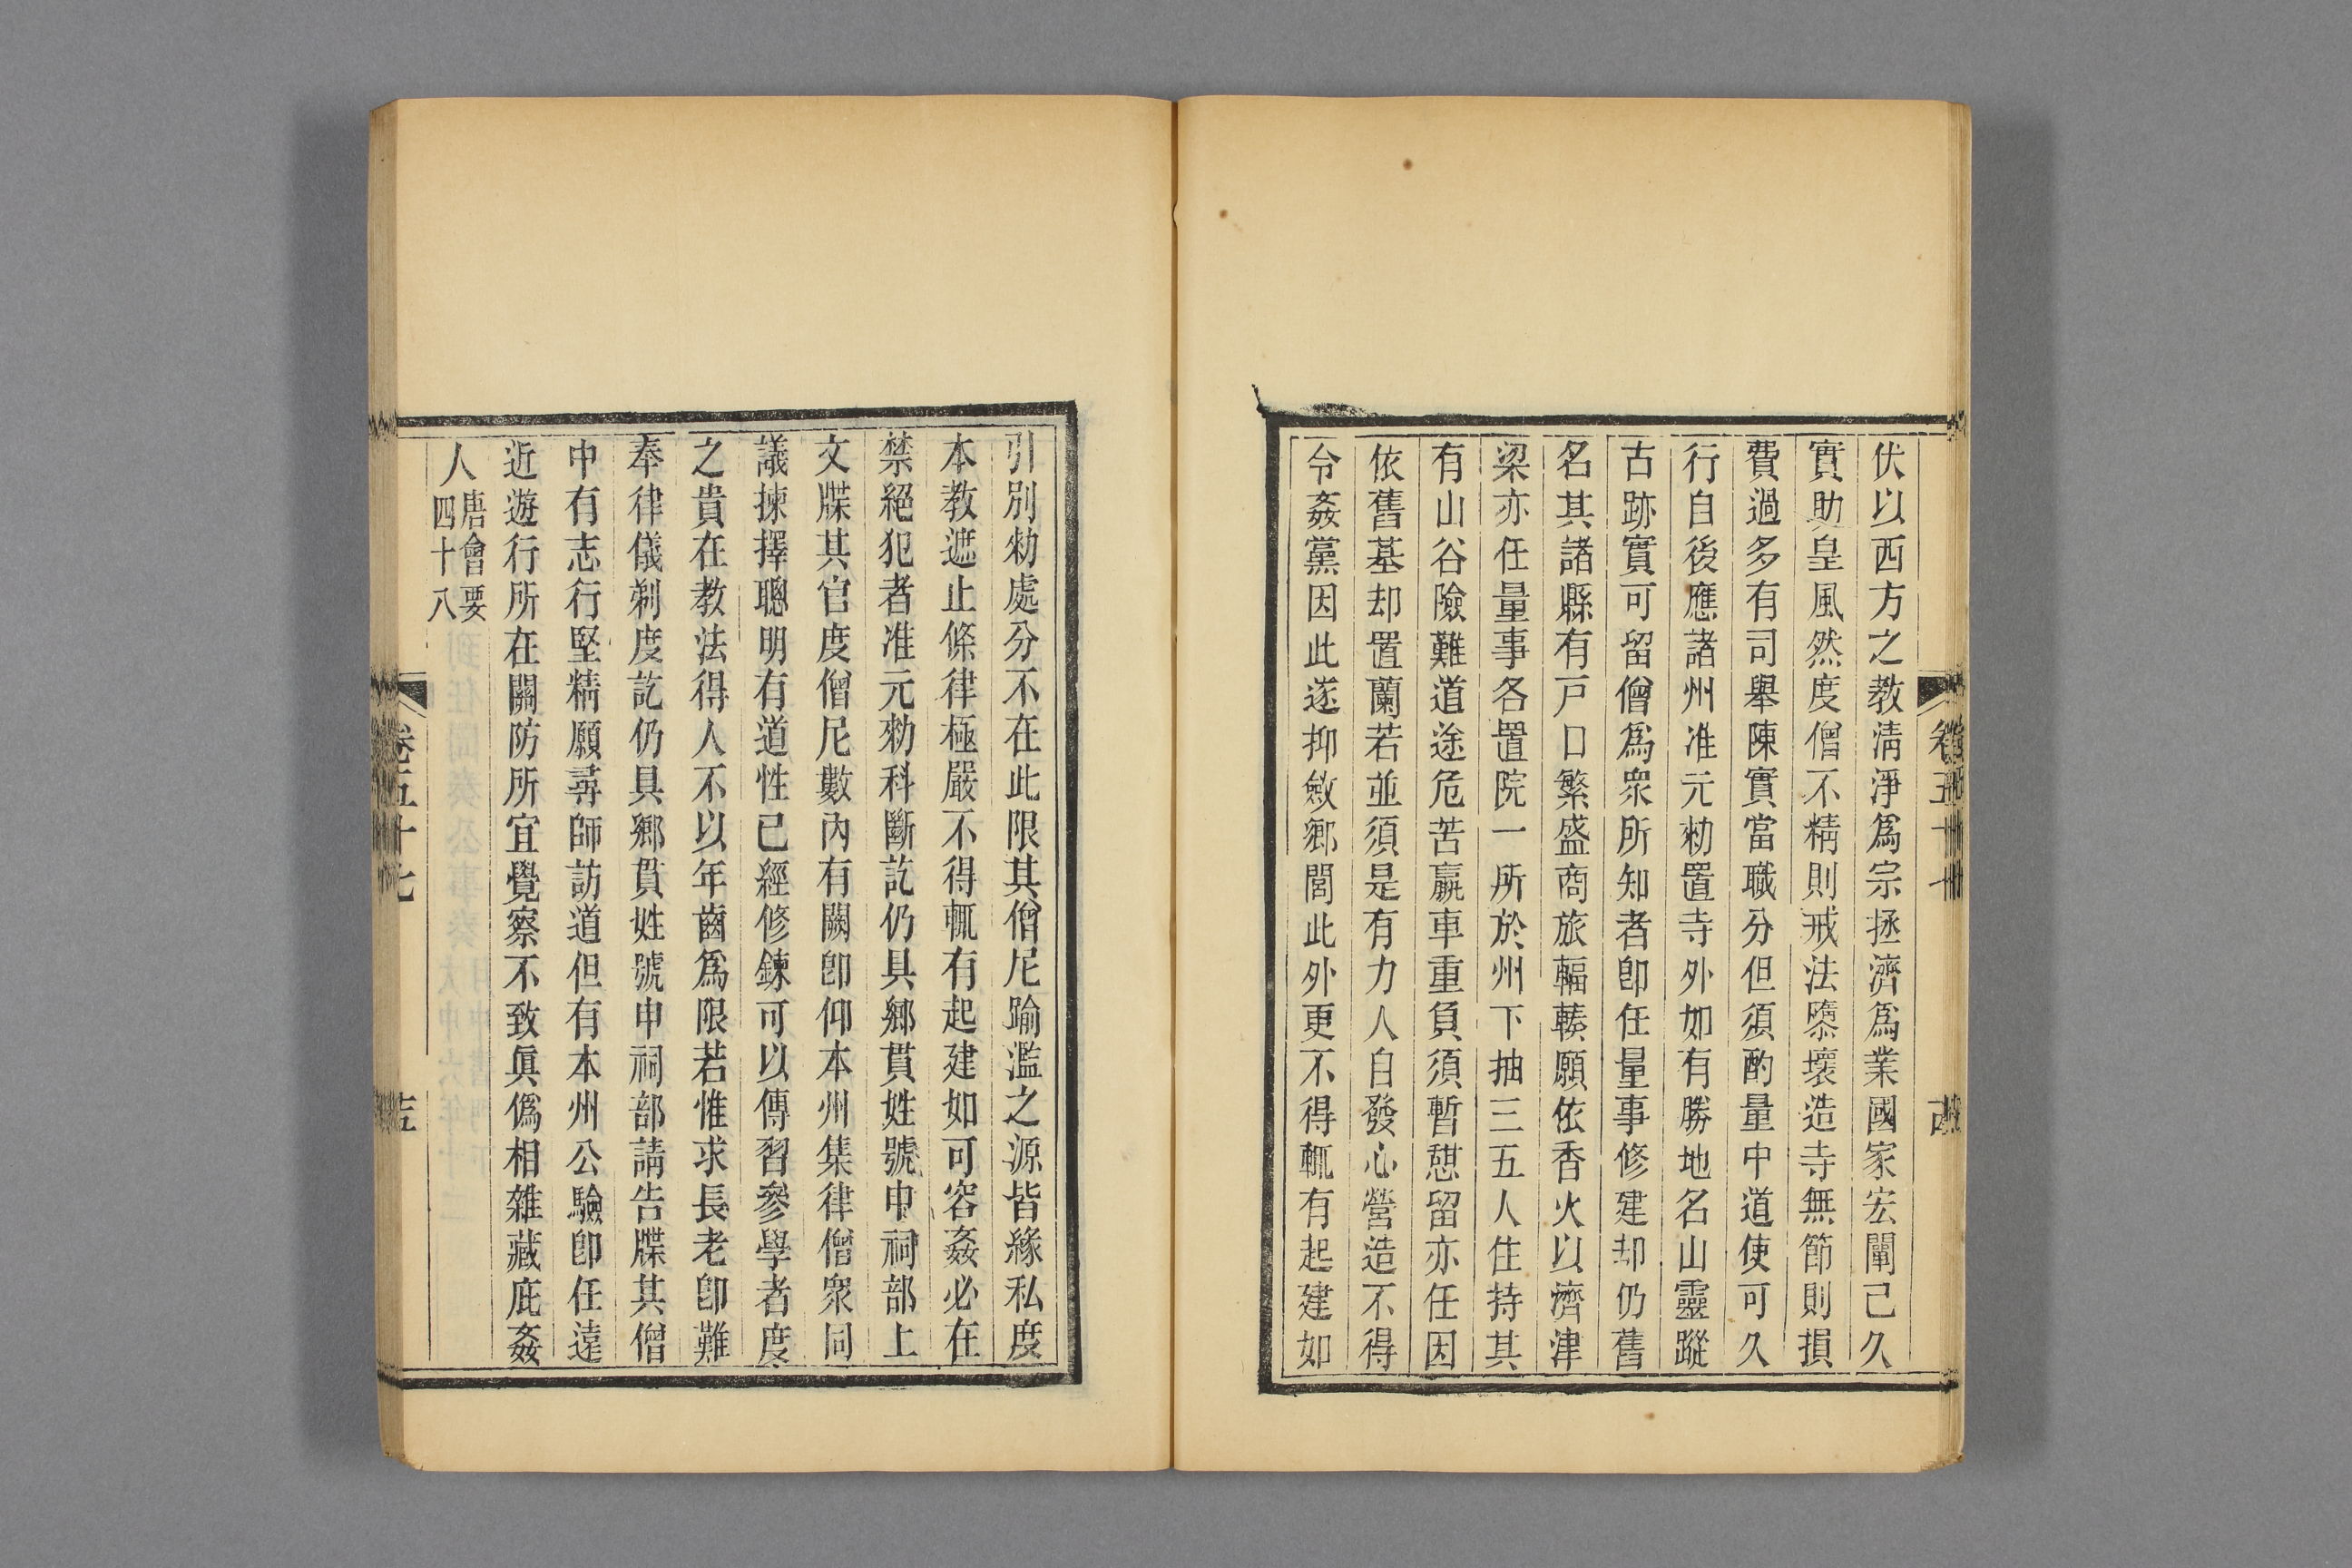 伏以西方之教淸淨爲宗拯濟爲業國家宏闡已久
實助皇風然度僧不精則戒法隳壞造寺無節則損
費過多有司舉陳實當職分但須酌量中道使可久
行自後應諸州准元勑置寺外如有勝地名山靈蹤
古跡實可留僧爲衆所知者卽任量事修建却仍舊
名其諸縣有戸口繁盛商旅輻輳願依香火以濟津
梁亦任量事各置院一所於州下抽三五人住持其
有山谷險難道途危苦羸車重負須暫憇留亦任因
依舊基却置蘭若並須是有力人自發心營造不得
令姦黨因此遂抑斂鄉閭此外更不得輒有起建如
引別勑處分不在此限其僧尼踰濫之源皆緣私度
本教遮止條律極嚴不得輒有起建如可容姦必在
禁絕犯者准元勑科斷訖仍具鄉貫姓號申祠部上
文牒其官度僧尼數內有闕卽仰本州集律僧衆同
議揀擇聰明有道性已經修鍊可以傳習參學者度
之貴在教法得人不以年齒爲限若惟求長老卽難
奉律儀剃度訖仍具鄉貫姓號申祠部請告牒其僧
中有志行堅精願尋師訪道但有本州公驗卽任遠
近遊行所在關防所宜覺察不致眞僞相雜藏庇姦
人唐會要
四十八
卷五十七